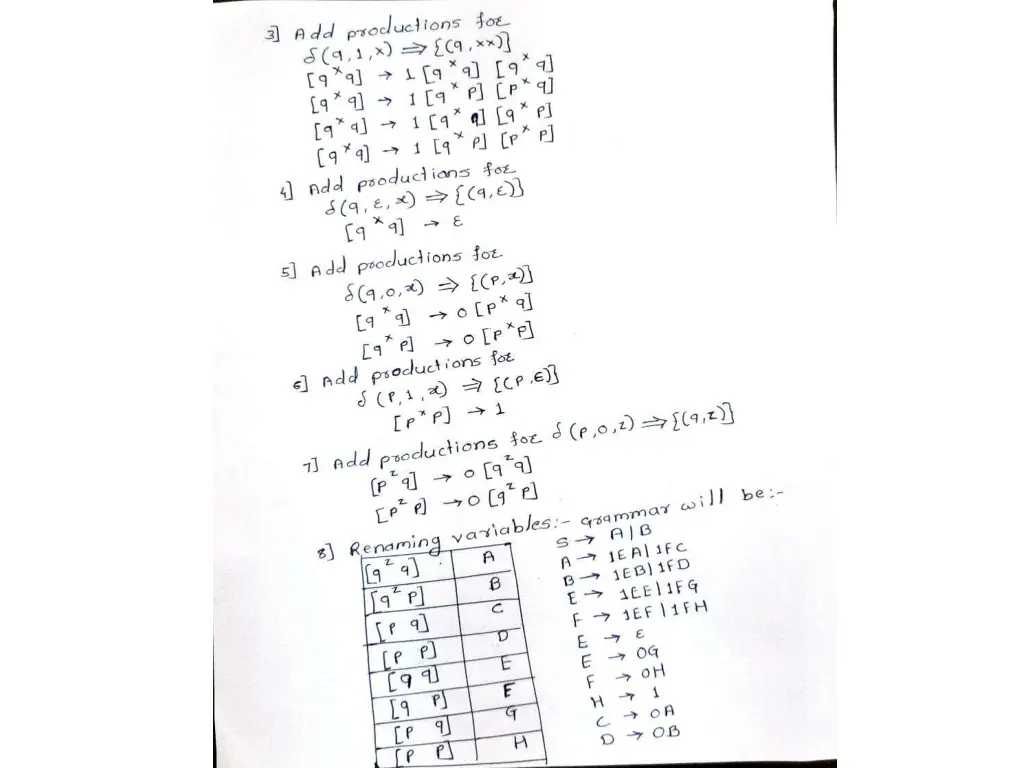 3] Add productions for
δ(q,1,x) ⇒ {(q,xx)}
[q x q] → 1 [q x q] [q x q]
[q x q] → 1 [q x p] [p x q]
[q x q] → 1 [q x q] [q x p]
[q x q] → 1 [q x p] [p x p]
4] Add productions for
δ(q,ε,x) ⇒ {(q,ε)}
[q x q] → ε
5] Add productions for
δ(q,0,x) ⇒ {(p,x)}
[q x q] → 0 [p x q]
[q x p] → 0 [p x p]
6] Add productions for
δ(p,1,x) ⇒ {(p,ε)}
[p x p] → 1
7] Add productions for δ(p,0,z) ⇒ {(q,z)}
[p z q] → 0 [q z q]
[p z p] → 0 [q z p]
8] Renaming variables:- grammar will be:-
[q z q] A
[q z p] B
[p q] C
[p p] D
[q q] E
[q p] F
[p q] G
[p p] H
S → A|B
A → 1EA|1FC
B → 1EB|1FD
E → 1EE|1FG
F → 1EF|1FH
E → ε
E → 0G
F → 0H
H → 1
C → 0A
D → 0B